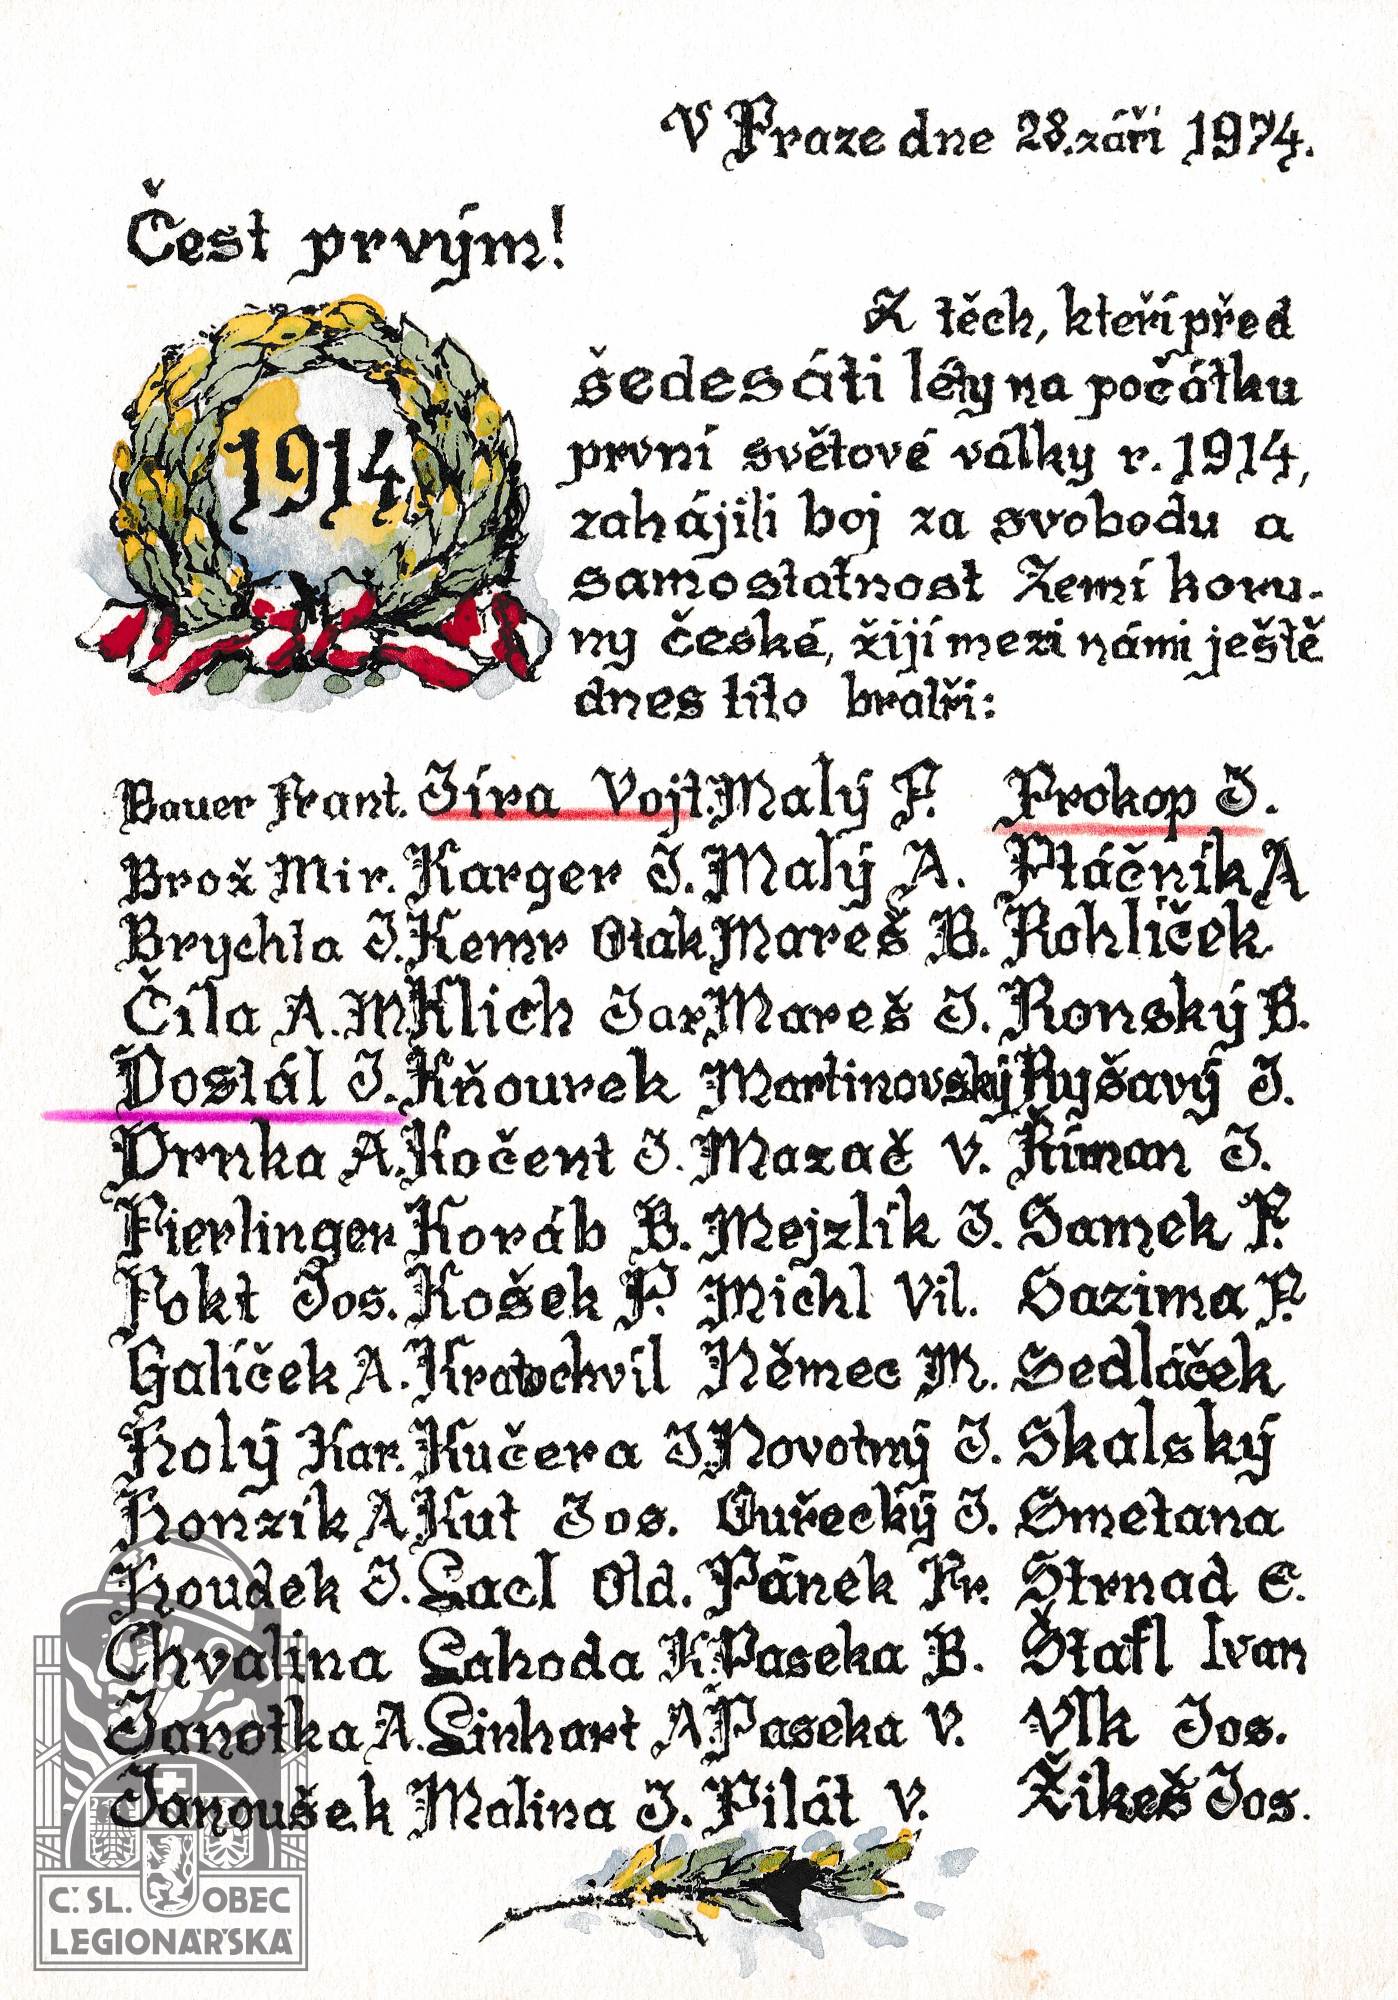 V Praze dne 28. září 1974.
Čest prvým!
1914
Z těch, kteří před
šedesáti léty na počátku
první světové války r. 1914,
zahájili boj za svobodu a
samostatnost Zemí koru-
ny české, žijí mezi námi ještě
dnes tito bratři:
Bauer Frant. Jíra Vojt. Malý F. Prokop J.
Brož Mir. Karger J. Malý A. Ptáčník A
Brychta J. Kemr Otak Mareš B. Rohlíček
Číla A. M. Klich Jar Mareš J. Ronský B.
Dostál J. Kňourek Martinovský Ryšavý J.
Drnka A. Kočent J. Mazač V. Říman J.
Fierlinger Koráb B. Mejzlík J. Samek F.
Fokt Jos. Košek F. Michl Vil. Sazima F.
Galíček A. Kratochvíl Němec M. Sedláček
Holý Kar. Kučera J. Novotný J. Skalský
Honzík A Kut Jos. Ouřecký J. Smetana
Houdek J. Lacl Old. Pánek Fr. Strnad E.
Chvalina Lahoda K. Paseka B. Štafl Ivan
Janotka A. Linhart A. Paseka V. Vlk Jos.
Janoušek Malina J. Pilát V. Žikeš Jos.
Č. SL. OBEC
LEGIONÁŘSKÁ